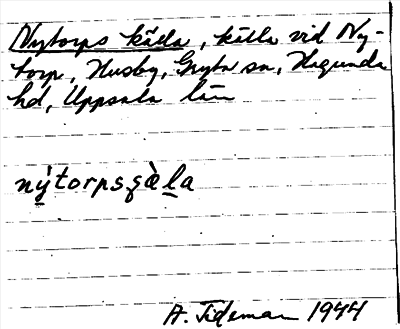 Nytorps källa, källa vid Ny-
torp, Husby, Gryta sn, Hagunda
hd, Uppsala län
nýtorpsçὰla
A. Tideman 1944